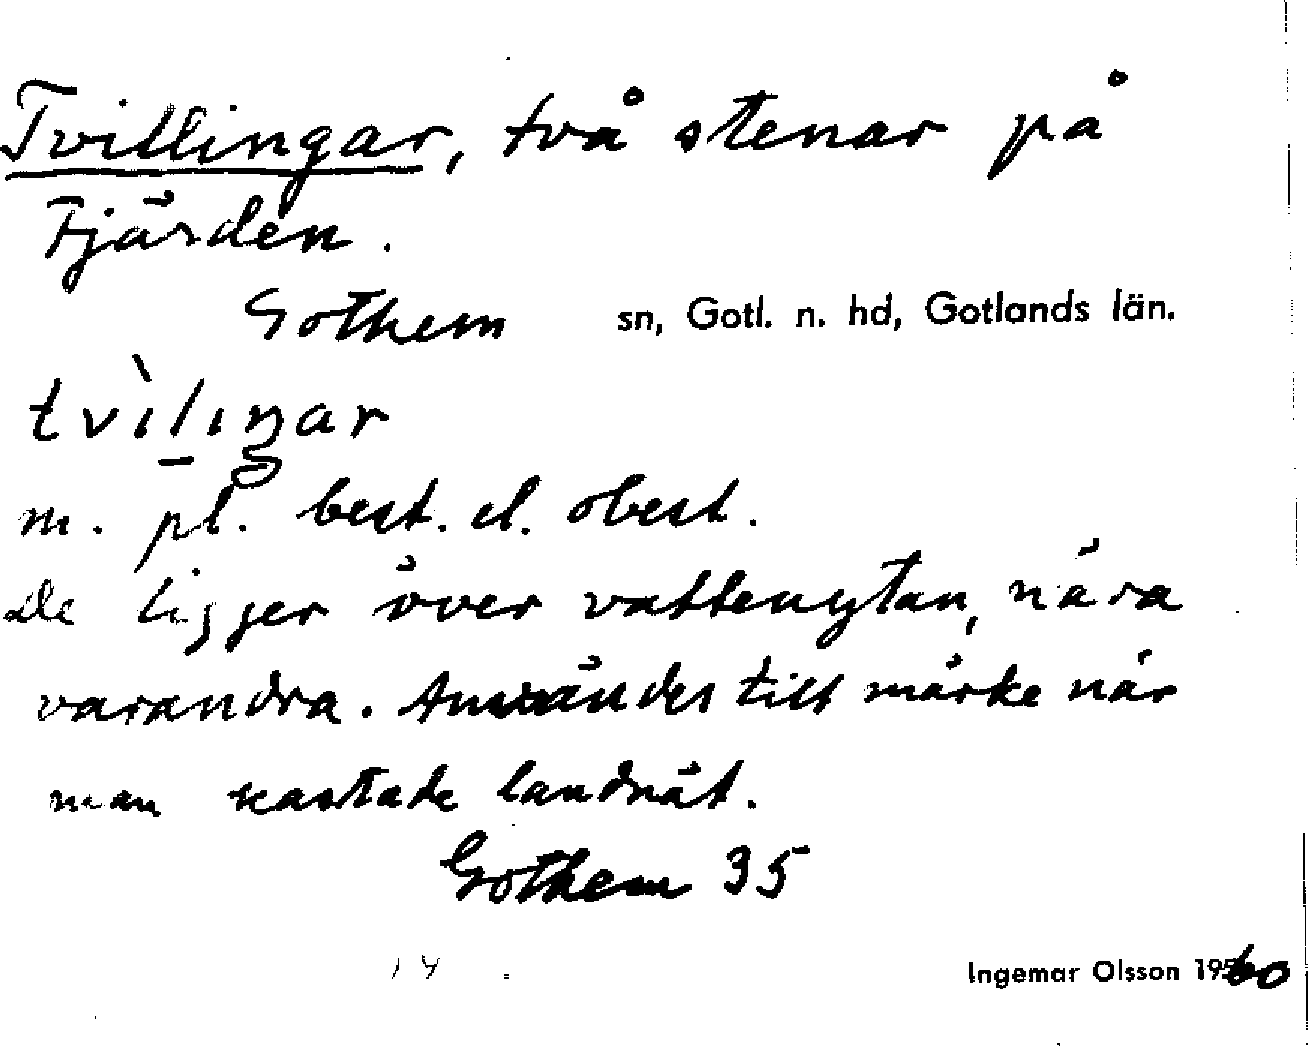 Tvillingar, två stenar på
Fjärden.
Gothem sn, Gotl. n. hd, Gotlands län.
tvìlıŋar
m. pl. best. el. obest.
De ligger över vattenytan, nära
varandra. Användes till märke när
man kastade landnät.
Gothem 35
Ingemar Olsson 1960